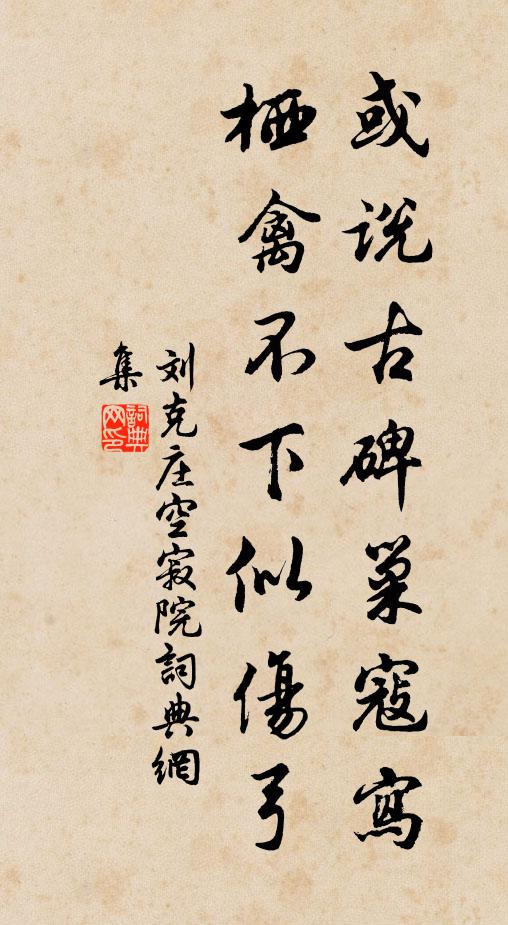 或説古碑巢寇寫
栖禽不下似傷弓
刘克庄空寂院詞典網
集
詞典网印